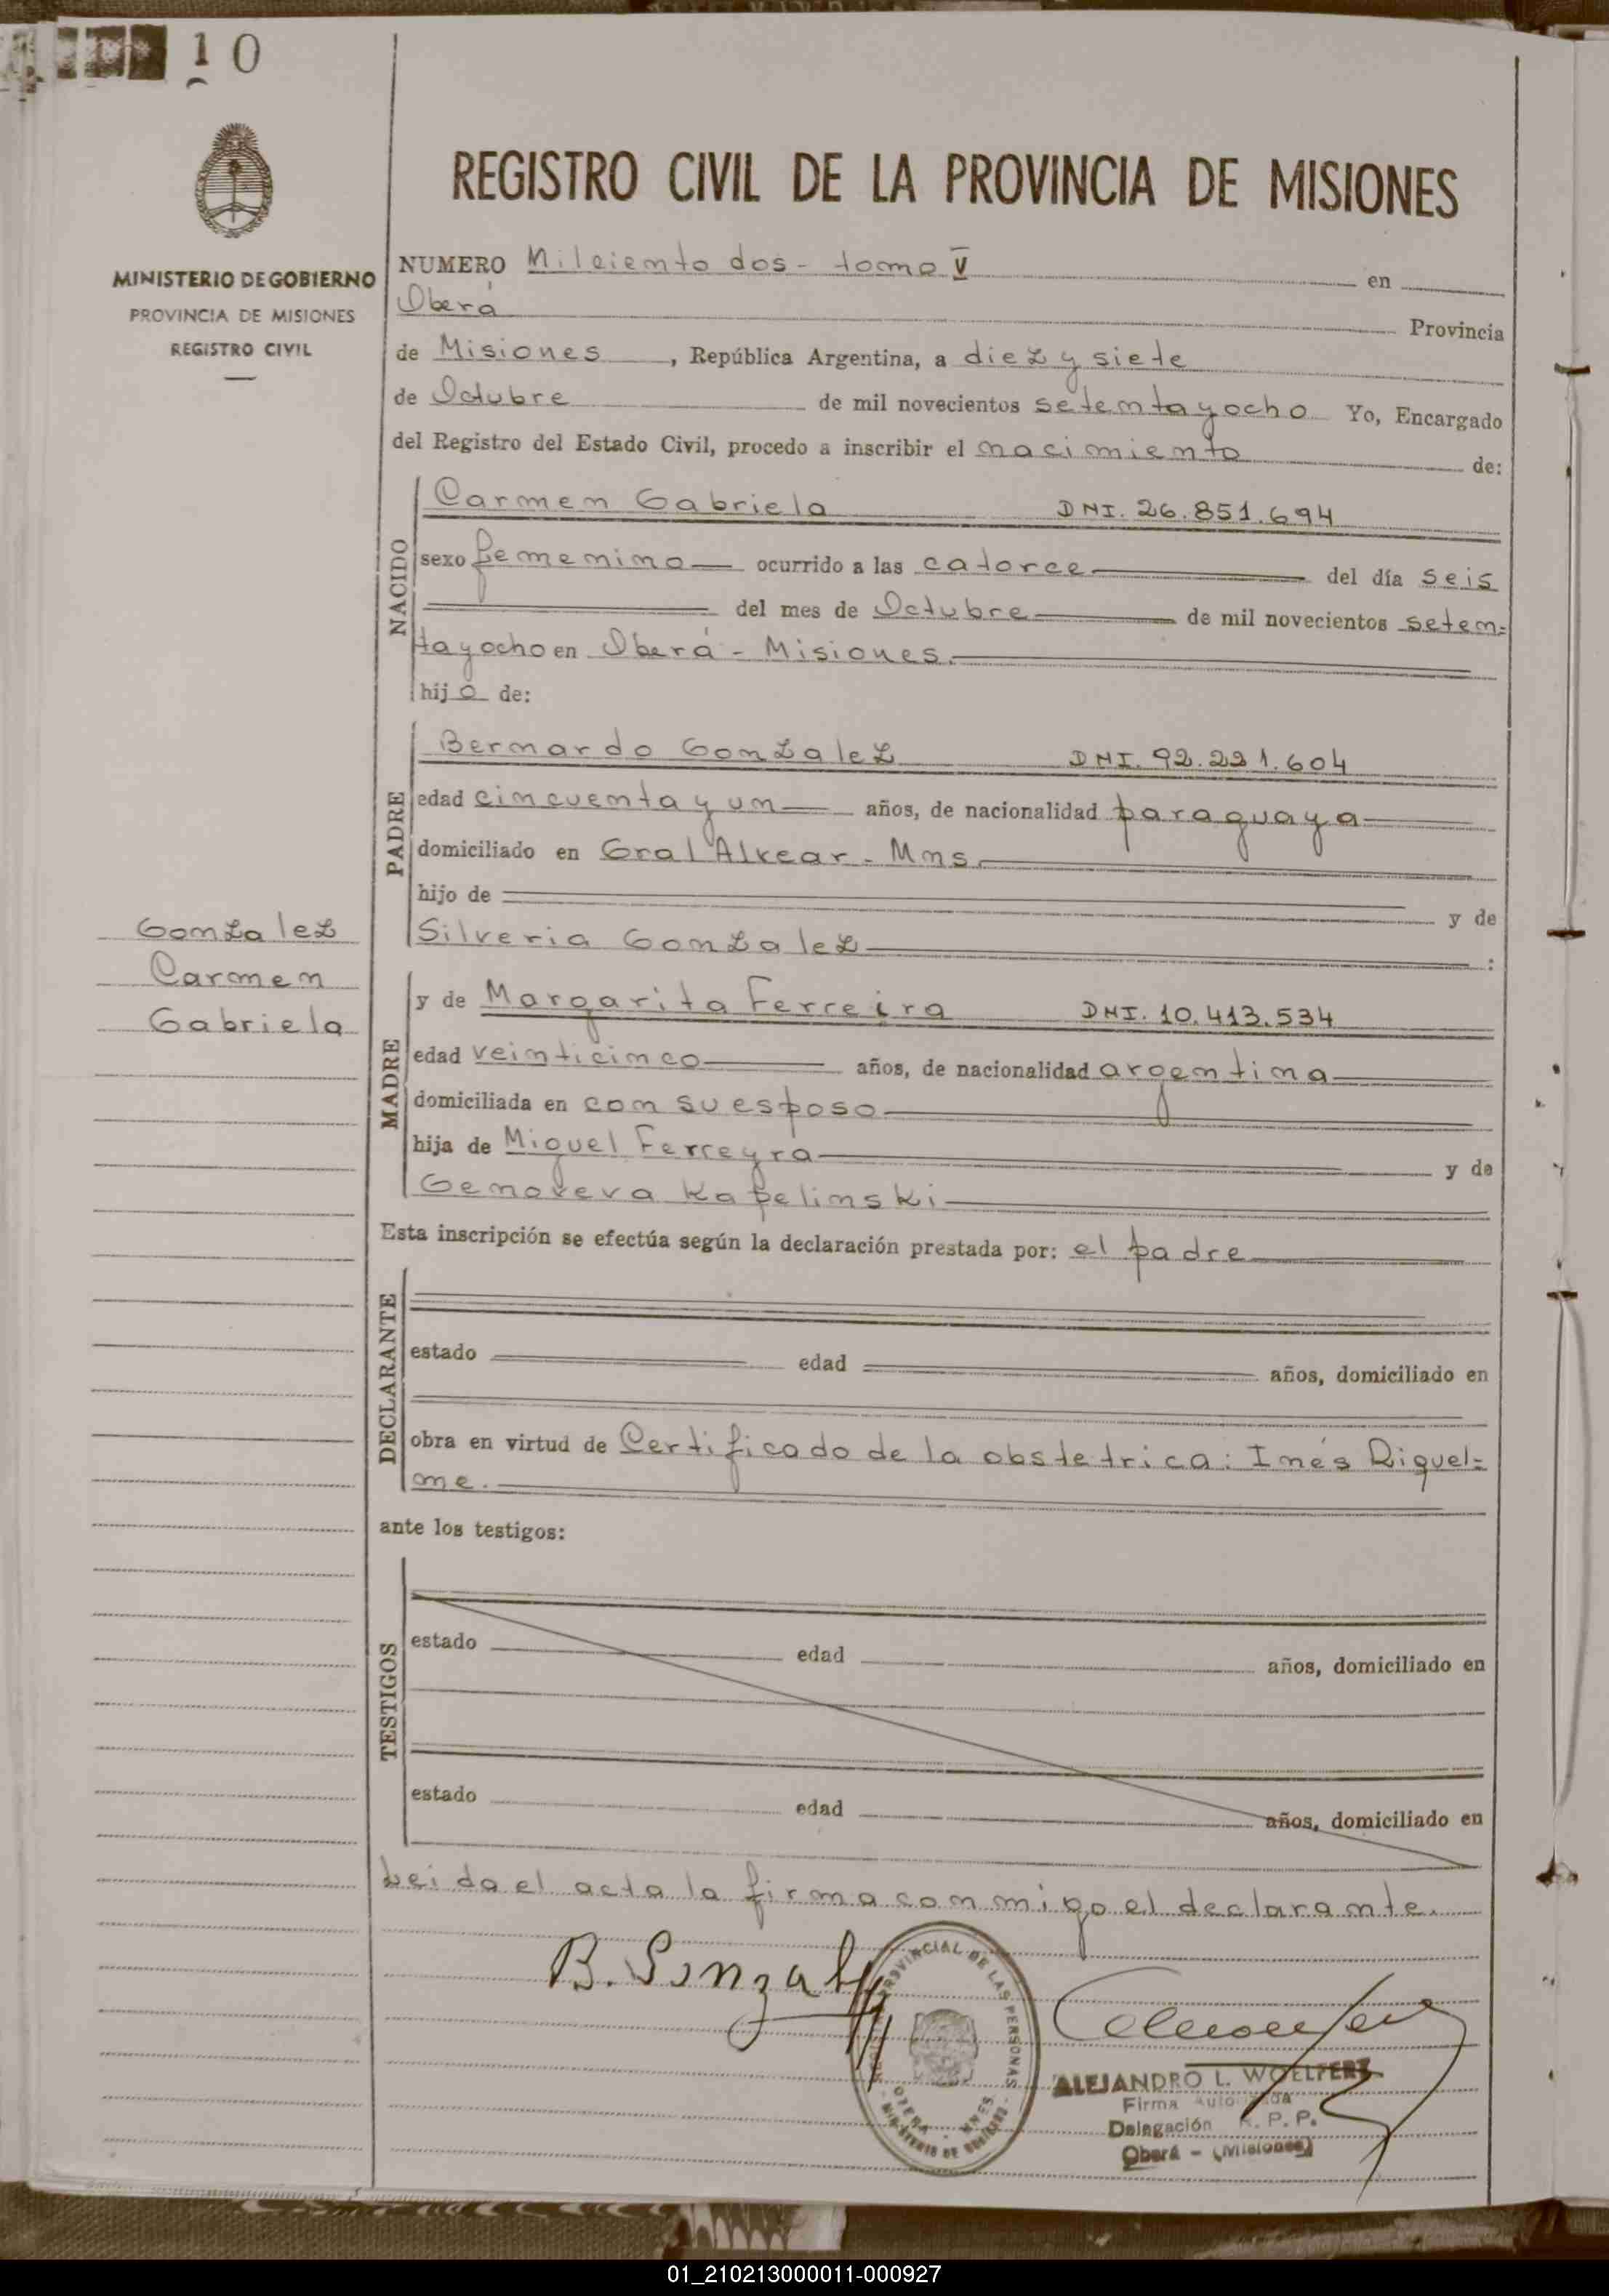 10
MINISTERIO DE GOBIERNO
PROVINCIA DE MISIONES
REGISTRO CIVIL
REGISTRO CIVIL DE LA PROVINCIA DE MISIONES
NUMERO Milciento dos - tomo V en
Oberá Provincia
de Misiones, República Argentina, a diez y siete
de Octubre de mil novecientos setentayocho Yo, Encargado
del Registro del Estado Civil, procedo a inscribir el nacimiento de:
NACIDO
Carmen Gabriela DNI. 26.851.694
sexo femenino ocurrido a las catorce del día seis
del mes de Octubre de mil novecientos seten=
tayocho en Oberá - Misiones.
hija de:
PADRE
Bernardo Gonzalez DNI. 92.291.604
edad cincuenta y un años, de nacionalidad paraguaya
domiciliado en Gral Alvear - Mns.
hijo de y de
Silveria Gonzalez :
Gonzalez
Carmen
Gabriela
MADRE
y de Margarita Ferreira DNI. 10.413.534
edad veinticinco años, de nacionalidad argentina
domiciliada en con su esposo
hija de Miguel Ferreyra y de
Genoveva Kapelinski
Esta inscripción se efectúa según la declaración prestada por: el padre
DECLARANTE
estado edad años, domiciliado en
obra en virtud de Certificado de la obstetrica: Inés Riquel=
me.
ante los testigos:
TESTIGOS
estado edad años, domiciliado en
estado edad años, domiciliado en
Leida el acta la firma conmigo el declarante.
B. Gonzalez
PROVINCIAL DE LAS PERSONAS
ALEJANDRO L. WOELFERT
Firma Autorizada
Delegación R. P. P.
Oberá - (Misiones)
01_210213000011-000927